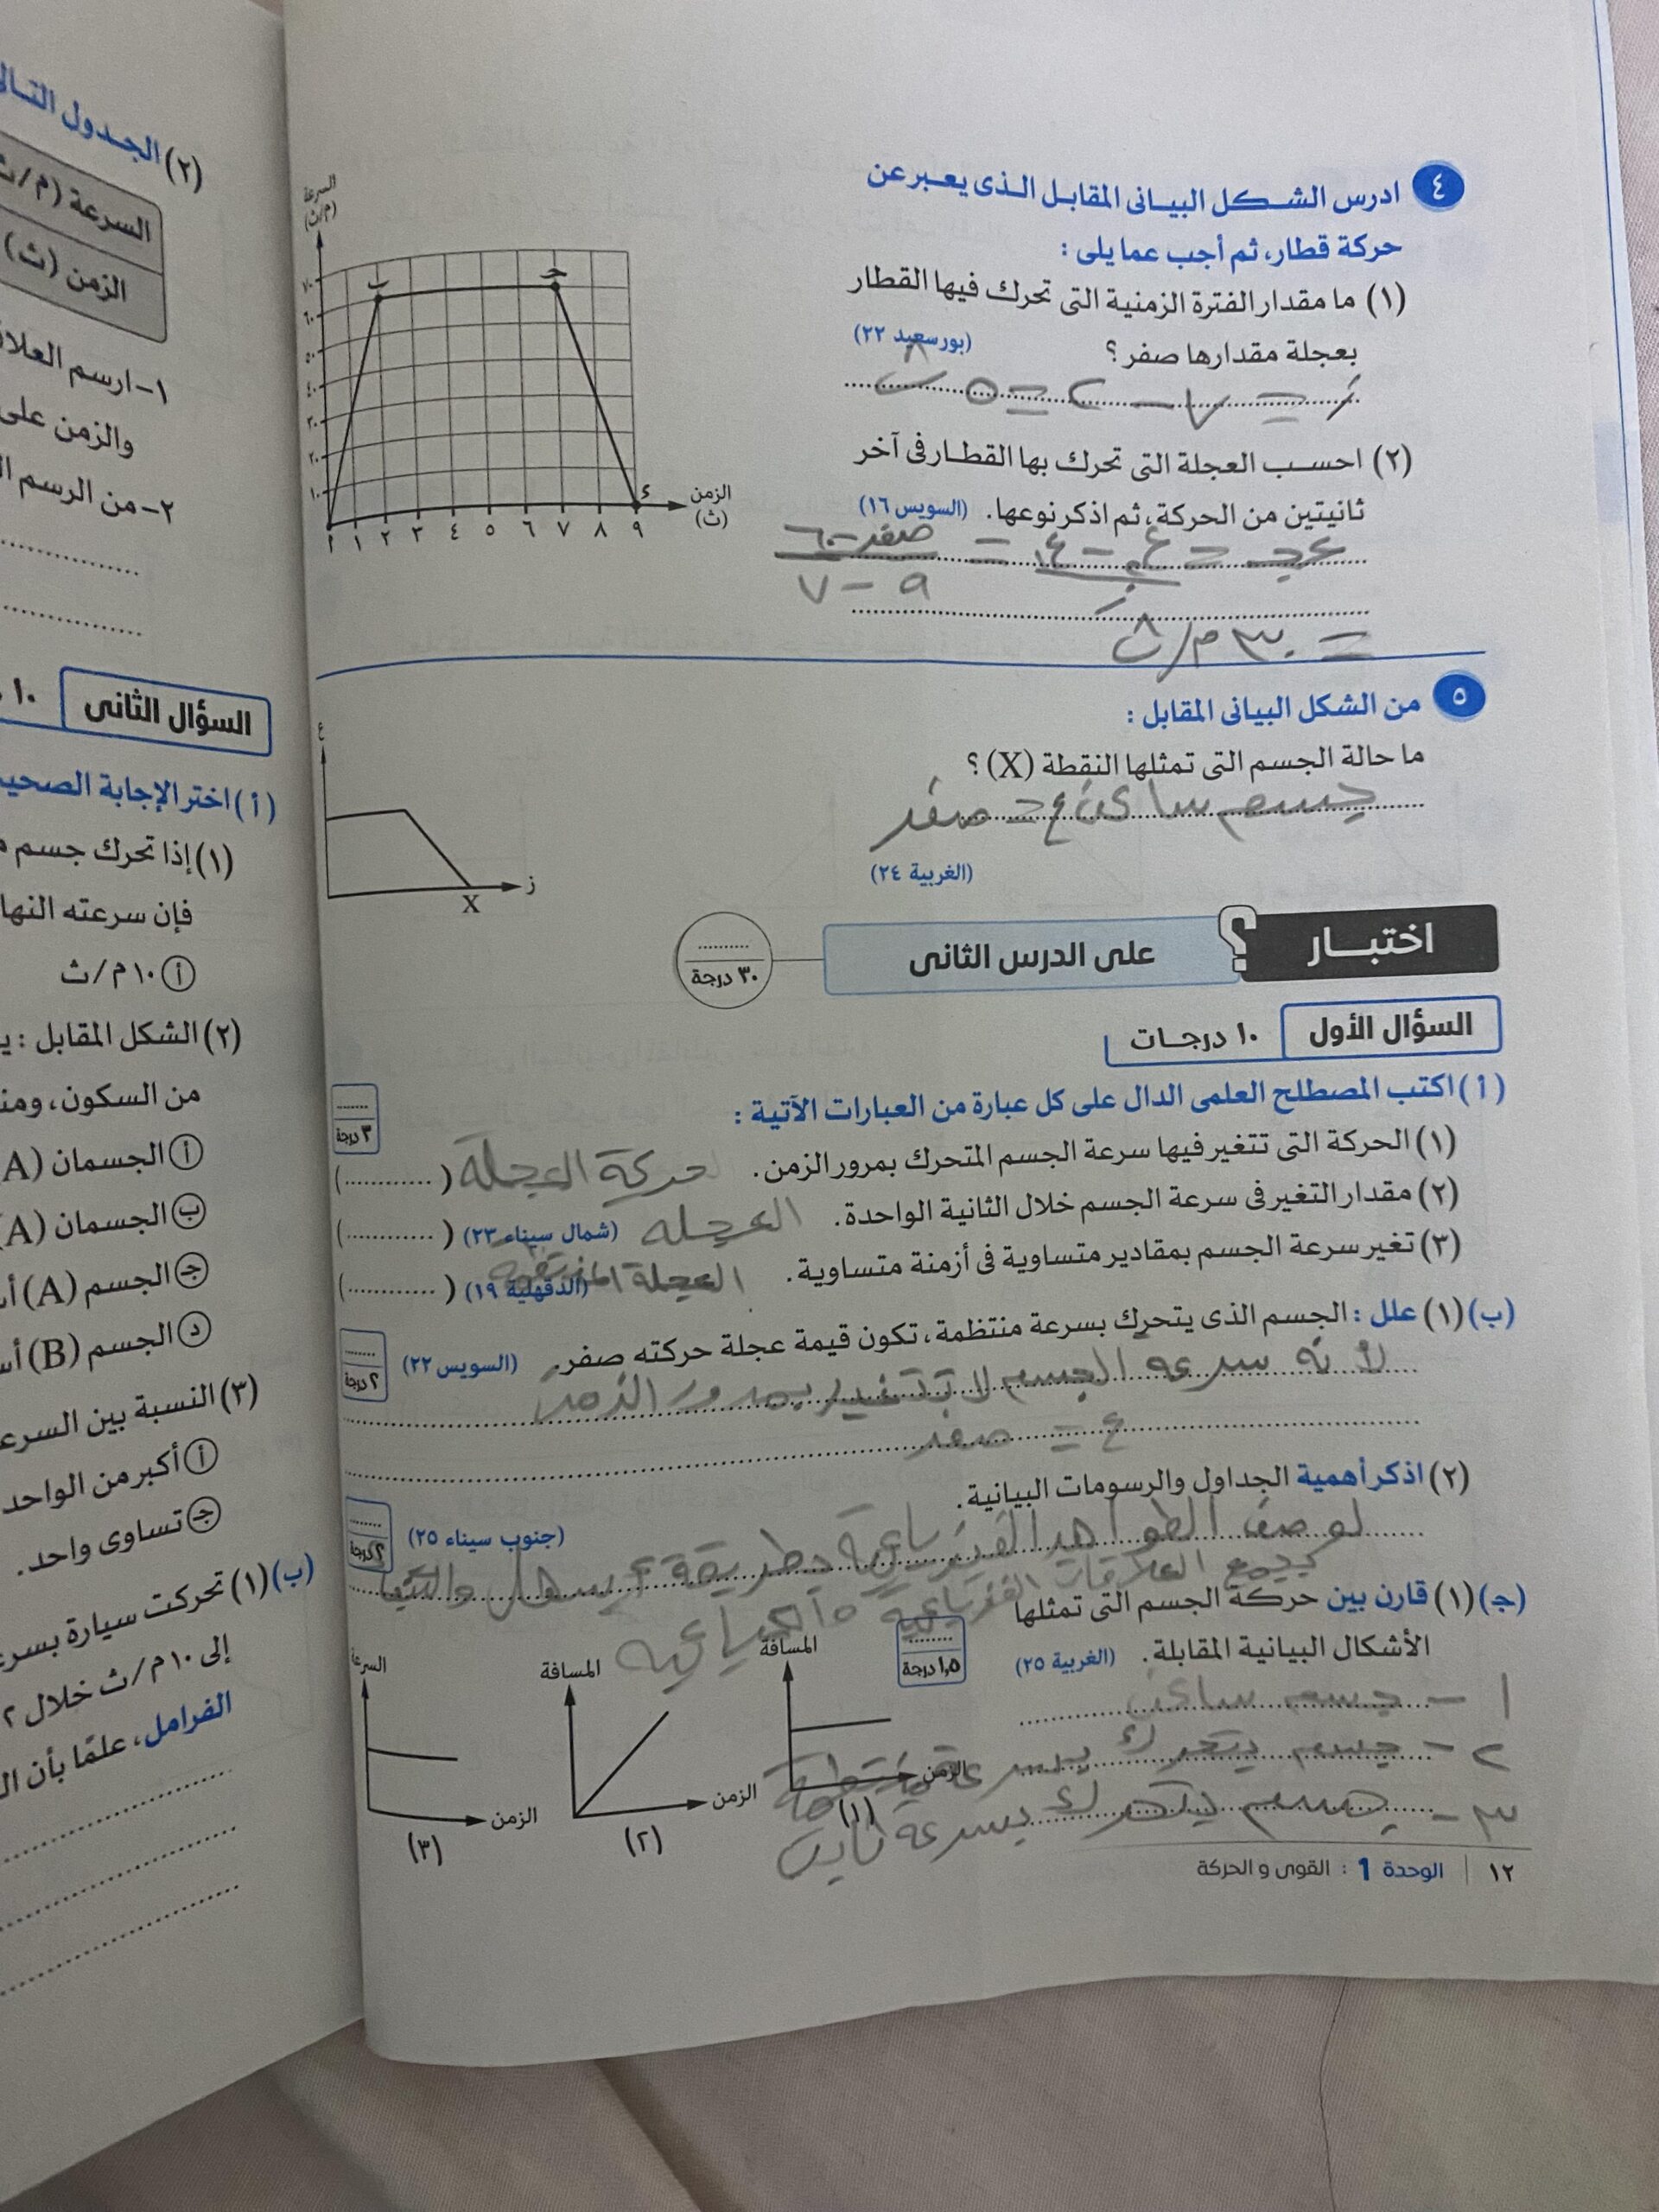 ٤ ادرس الشكل البيانى المقابل الذى يعبر عن
حركة قطار، ثم أجب عما يلى :
(١) ما مقدار الفترة الزمنية التى تحرك فيها القطار
بعجلة مقدارها صفر ؟ (بورسعيد ٢٢)
ز = ٧ - ٢ = ٥ ث
(٢) احسب العجلة التى تحرك بها القطار فى آخر
ثانيتين من الحركة، ثم اذكر نوعها. (السويس ١٦)
صفر - ٦٠
٩ - ٧
= ٣٠ م/ث٢
السرعة
(م/ث)
٧٠
٦٠
٥٠
٤٠
٣٠
٢٠
١٠
ب
جـ
ء
أ ١ ٢ ٣ ٤ ٥ ٦ ٧ ٨ ٩
الزمن
(ث)
٥ من الشكل البيانى المقابل :
ما حالة الجسم التى تمثلها النقطة (X) ؟
جسم ساكن ع = صفر
(الغربية ٢٤)
ع
ز
X
اختبـار ؟ على الدرس الثانى
٣٠ درجة
السؤال الأول ١٠ درجات
(أ) اكتب المصطلح العلمى الدال على كل عبارة من العبارات الآتية :
٣ درجة
(١) الحركة التى تتغير فيها سرعة الجسم المتحرك بمرور الزمن. حركة العجلة (............)
(٢) مقدار التغير فى سرعة الجسم خلال الثانية الواحدة. العجله (شمال سيناء ٢٣) (............)
(٣) تغير سرعة الجسم بمقادير متساوية فى أزمنة متساوية. العجلة المنتظمة (الدقهلية ١٩) (............)
(ب) (١) علل : الجسم الذى يتحرك بسرعة منتظمة، تكون قيمة عجلة حركته صفر. (السويس ٢٢)
٢ درجة
لأنه سرعه الجسم لا تتغير بمرور الزمن
ع = صفر
(٢) اذكر أهمية الجداول والرسومات البيانية.
(جنوب سيناء ٢٥)
٢ درجة
لوصف الظواهر الفيزيائية بطريقة أسهل
العلاقات الفيزيائية
(جـ) (١) قارن بين حركة الجسم التى تمثلها
الأشكال البيانية المقابلة. (الغربية ٢٥)
١,٥ درجة
١ - جسم ساكن
٢ - جسم يتحرك بسرعة منتظمة
٣ - جسم يتحرك بسرعة
المسافة
الزمن
(١)
المسافة
الزمن
(٢)
السرعة
الزمن
(٣)
١٢ | الوحدة 1 : القوى و الحركة
(٢) الجدول
السرعة (م/ث
الزمن (ث)
١- ارسم
والزمن على
٢- من الرسم
السؤال الثانى ١٠
(أ) اختر الإجابة
(١) إذا تحرك جسم
فإن سرعته
أ ١٠ م/ث
(٢) الشكل المقابل :
من السكون،
أ الجسمان (A
ب الجسمان (A
جـ الجسم (A)
د الجسم (B)
(٣) النسبة بين
أ أكبر من الواحد
جـ تساوى واحد.
(ب) (١) تحركت سيارة
إلى ١٠ م/ث خلال ٢
الفرامل، علمًا بأن